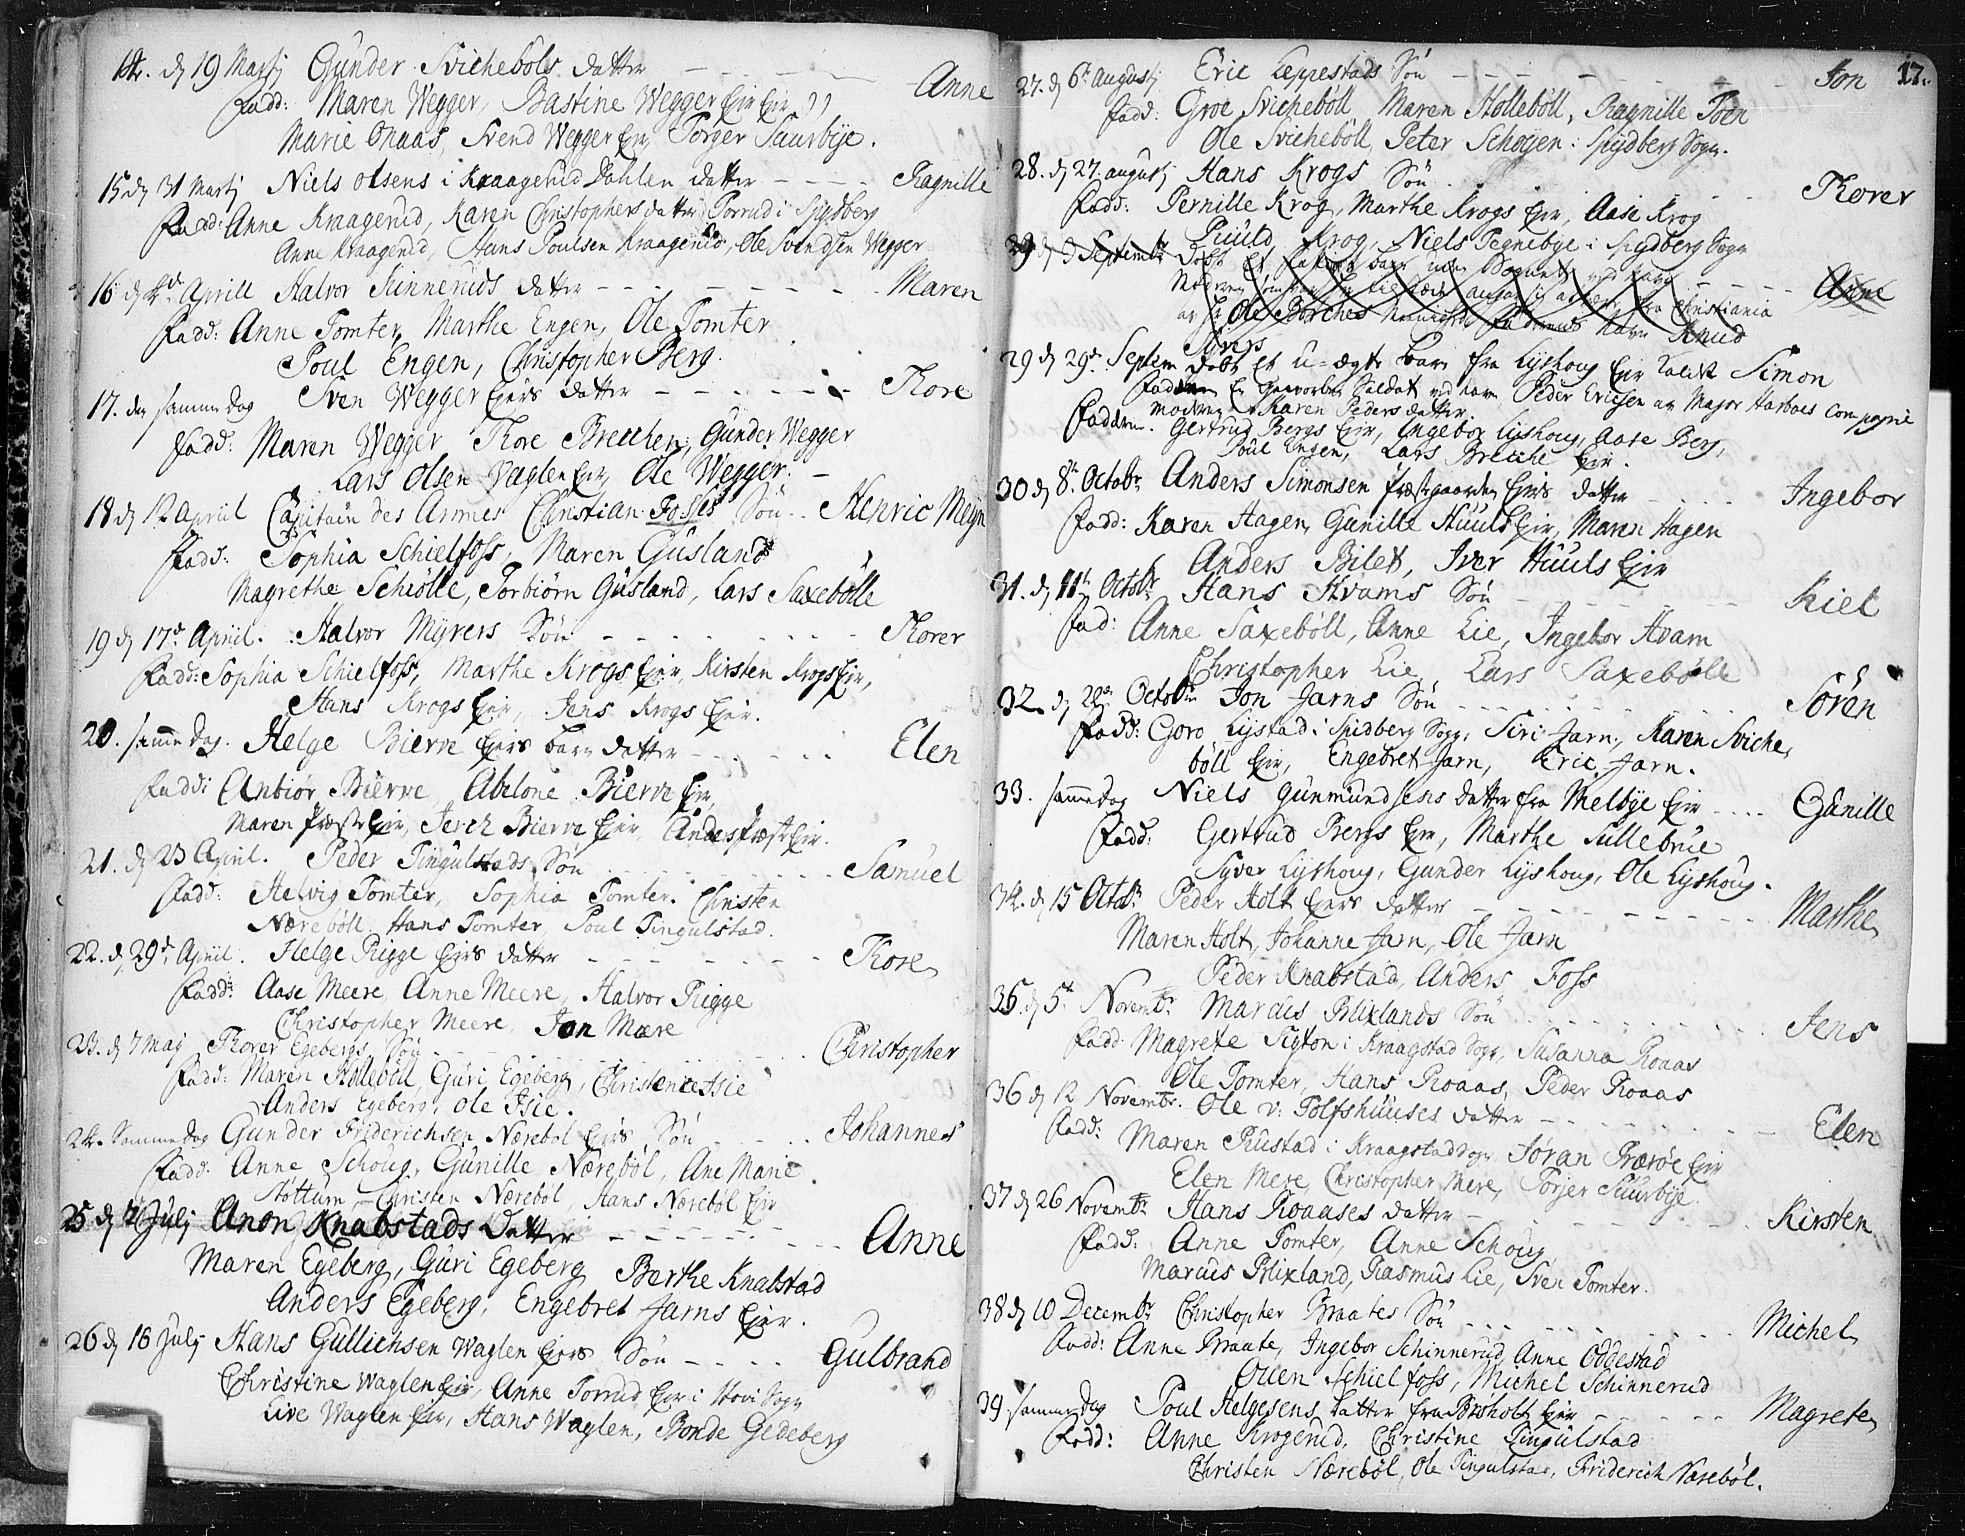 14. d 19 Martj Gunder Svichebøls datter - - - - - Anne
Fadd: Maren Wegger, Bastine Wegger Ejer
Marie Onaas, Svend Wegger Ejer, Torger Saurbÿe.
15 d 31 Martj Niels Olsens i Kraagerud Dahlen datter - - - - Ragnille
Fadd: Anne Kraagerud, Karen Christophers datter Torrud i Spÿdberg
Anne Kraagerud, Hans Poulsen Kraagerud, Ole Svendsen Wegger
16 d 2d Aprill Halvor Skinneruds datter - - - - - - Maren
Fadd: Anne Tomter, Marthe Engen, Ole Tomter
Poul Engen, Christopher Berg.
17. den samme dag Sven Wegger Ejers datter - - - - - - Thore
Fadd: Maren Wegger Thore Brecchen, Gunder Wegger
Lars Olsen Vaglen Ejer, Ole Wegger. -
18 d 12 April Capitain des Armes Christian Fosses Søn - - Henric Meyn
Fadd: Sophia Schielfoss, Maren Gusland
Magrethe Schiølle, Torbiørn Gusland, Lars Saxebølle
19 d 17d April. Halvor Myrers Søn - - - - - - - Thorer
Fadd: Sophia Schielfoss, Marthe Krogs Ejer, Kirsten Krogs Ejer,
Hans Krogs Ejer, Jens Krogs Ejer.
20. samme dag. Helge Bierve Ejers barn datter - - - - - Elen
Fadd: Anbiør Bierve Abelone Bierve Ejer,
Maren Præst Ejer, Jerch Bierve Ejer, Andes Præst Ejer.
21. d 23 April. Peder Tingulstads Søn - - - - - - Samuel
Fadd: Helvig Tomter, Sophia Tomter. Christen
Nærebøll Hans Tomter, Poul Tingulstad.
22. d 29d April. Helge Rigge Ejers datter - - - - - - Thore
Fadd: Aase Meere, Anne Meere, Halvor Rigge
Christopher Meere, Jon Mære
23. d 7 Maj Thorer Egebergs Søn - - - - - - Christopher
Fadd: Maren Hollebøll, Guri Egeberg, Christence Isie
Anders Egeberg, Ole Isie.
24. Samme dag Gunder Friderichsen Nærebøl Ejers Søn - - - - Johannes
Fadd: Anne Schoug, Gunille Nærebøl, Ane Marie
Nøttum, Christen Nærebøl, Hans Nærebøl Ejer
25 d 2 Julj Anon Knabstads Datter - - - - - - Anne
Maren Egeberg, Guri Egeberg Berthe Knabstad
Anders Egeberg, Engebret Jarns Ejer.
26 d 16 Julj Hans Gullichsen Waglen Ejers Søn - - - - Gulbrand
Christine Waglen Ejer, Anne Torrud Ejer i Hovi Sogn
Live Waglen Ejer, Hans Waglen, Bonde Gedeberg
17.
27. d 6t Augustj Eric Leppestads Søn - - - - - - Jon
Fadd: Groe Svichebøll, Maren Hollebøll, Ragnille Toen
Ole Svichebøll, Peter Schøyen i Spydberg Sogn.
28. d 27 augustj Hans Krogs Søn - - - Thorer
Fadd: Pernille Krog, Marthe Krogs Ejer, Aase Krog
Puuld Krog, Niels Tegnebye i Spydberg Sogn
29 d 3 Septembr Døbt Et barn - - - - Anne
Christiania
Ole Navn Knud
29 d 29d Septem døbt et U-ægte barn fra Lyshoug Ejer kaldet Simon
Fadderen En Soldat ved navn Peder Ericsen av Major Harboes Compagnie
Moderen Karen Peders datter.
Faddere. Gertrud Bergs Ejer, Ingebor Lyshoug, Aase Berg,
Poul Engen, Lars Ejer.
30 d 8t Octobr Anders Simonsen Præstgaarden Ejers datter - - - - Ingebor
Fadd: Karen Hagen, Gunille Huuls Ejer, Maren Hagen
Anders Bilet, Iver Huuls Ejer
31. d 11t Octobr Hans Hvams Søn - - - - - - Kiel
Fad: Anne Saxebøll, Anne Lie, Ingebor Hvam
Christopher Lie, Lars Saxebølle
32. d 22 Octobr Jon Jarns Søn - - - - - - Søren
Fadd: Goro Lystad i Spidberg Sogn, Siri Jarn, Karen Sviche
bøll Ejer, Engebret Jarn, Eric Jarn.
33. samme dag Niels Gunmundsens datter fra Melbye Ejer - - - - Gunille
Fadd: Gertrud Bergs Ejer, Marthe Sillebrue
Syver Lyshoug, Gunder Lyshoug, Ole Lyshoug.
34. d 15 Octobr Peder Holt Ejers datter - - - - - - Marthe
Maren Holt, Johanne Jarn, Ole Jarn
Peder Knabstad, Anders Foss
35. d 5t Novembr Marcus Blixlands Søn - - - - - - Jens
Fadd Magrete Tigton i Kraagstad Sogn, Susanna Roaas
Ole Tomter, Hans Roaas, Peder Roaas
36 d 12 Novembr. Ole v: Tolfshuuses datter - - - - - - Elen
Fadd: Maren Rustad i Kraagstad Sogn Jøran Prærøe Ejer
Elen Mere Christopher Mere, Torjer Suurbye.
37 d 26 Novembr Hans Roaases datter - - - - - - Kirsten
Fadd: Anne Tomter, Anne Schoug
Marcus Blixland, Rasmus Lie, Sven Tomter.
38 d 10 Decembr Christopher Braates Søn - - - - - - Michel
Fadd: Anne Braate, Ingebor Schinnerud Anne Oddestad
Ouen Schielfoss, Michel Schinnerud
39 samme dag Poul Helgesens datter fra Broholt Ejer - - - - - Magrete
Fadd: Anne Krogerud, Christine Tingulstad
Christen Nærebøl, Ole Tingulstad, Friderich Nærebøl.